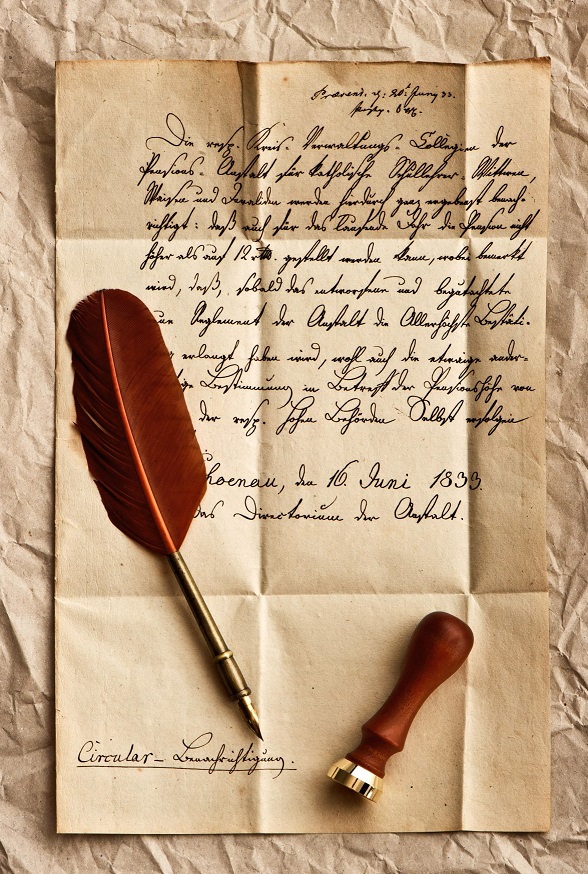 Praesent. d: 20t Juny 33.
Die resp. Kreis-Verwaltungs-Collegien der
Pensions-Anstalt für katholische Schullehrer, Wittwen,
Waisen und Invaliden werden hierdurch ganz ergebenst benach-
richtigt: daß auch für das laufende Jahr die Pension nicht
höher als auf 12 rtl. gestellt werden kann, wobei bemerkt
wird, daß, sobald das entworfene und begutachtete
neue Reglement der Anstalt die Allerhöchste Bestäti-
erlangt haben wird, wohl auch die etwaige ander-
ige Bestimmung in Betreff der Pensionshöhe von
der resp. hohen Behörden Selbst erfolgen
hoenau, den 16. Juni 1833.
das Directorium der Anstalt.
Circular-Benachrichtigung.